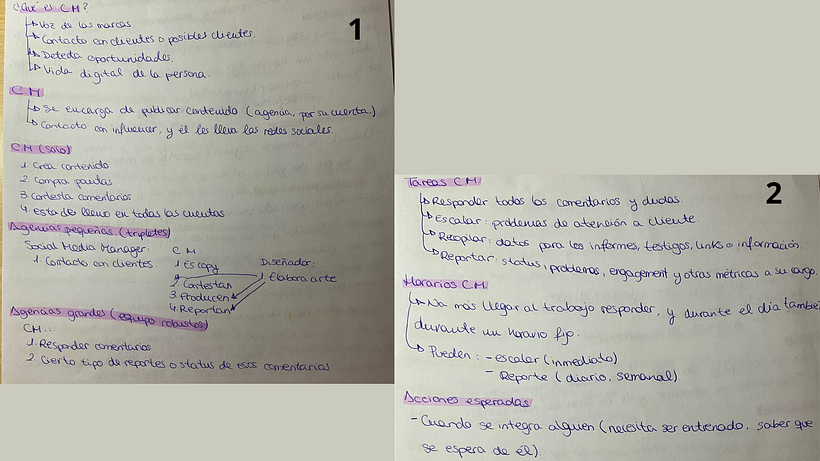 ¿Qué es CM?
Voz de las marcas
Contacto con clientes o posibles clientes.
Detecta oportunidades.
Vida digital de la persona.
1
CM
Se encarga de publicar contenido (agencia, por su cuenta)
Contacto con influencer, y él les lleva las redes sociales.
CM (solo)
1. Crea contenido
2. Compra pautas
3. Contesta comentarios
4. Esta de lleno en todas las cuentas
Agencias pequeñas (tripletes)
Social Media Manager:
1. Contacto con clientes.
CM:
1. Es copy
2. Contestan
3. Producen
4. Reportan
Diseñador:
1. Elabora arte
Agencias grandes (equipo robustos)
CM:
1. Responder comentarios
2. Cierto tipo de reportes o status de esos comentarios
2
Tareas CM
Responder todos los comentarios y dudas.
Escalar: problemas de atención a cliente.
Recopilar: datos para los informes, testigos, links o información.
Reportar: status, problemas, engagement y otras métricas a su cargo.
Horarios CM
Na más llegar al trabajo responder, y durante el día tambie
durante un horario fijo.
Pueden: - escalar (inmediato)
- Reporte (diario, semanal)
Acciones esperadas
- Cuando se integra alguien (necesita ser entrenado, saber que
se espera de él).